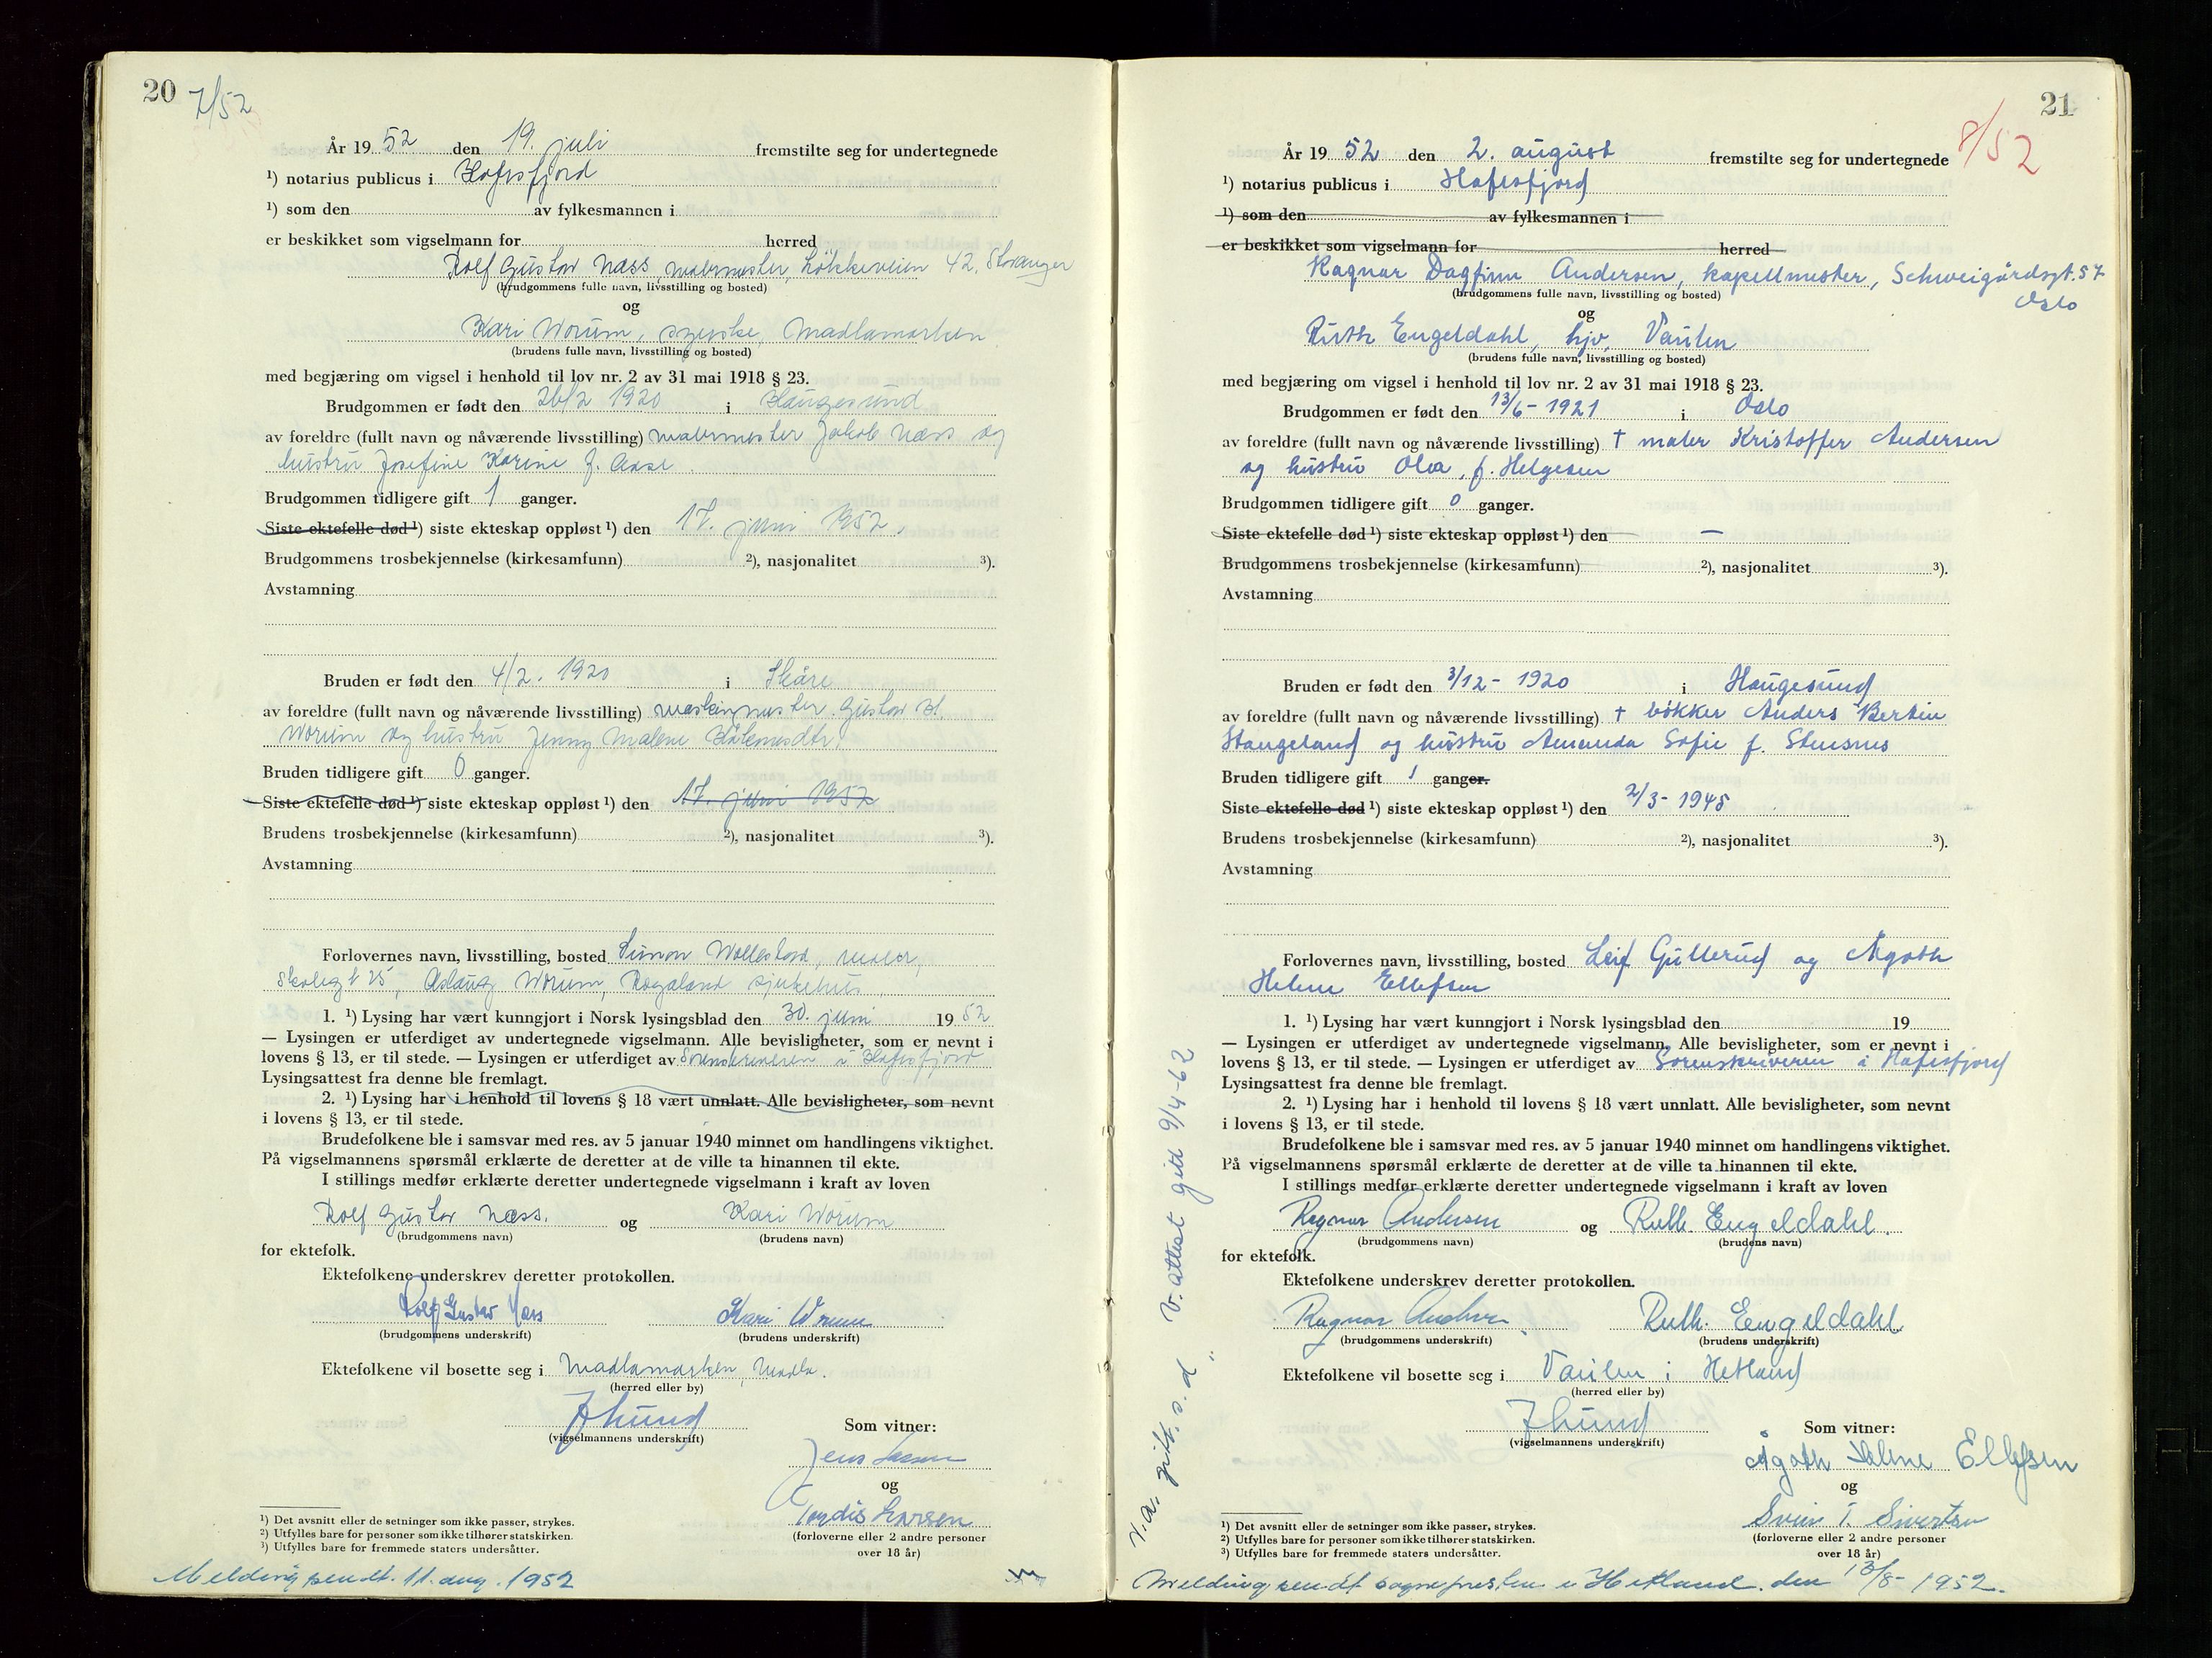 20
7/52
År 19 52 den 19. juli fremstilte seg for undertegnede
¹) notarius publicus i Hafrsfjord
¹) som den av fylkesmannen i
er beskikket som vigselmann for herred
Rolf Gustav Næss, malermester, Løkkeveien 42, Stavanger
(brudgommens fulle navn, livsstilling og bosted)
og
Kari Worum, syerske, Madlamarken
(brudens fulle navn, livsstilling og bosted)
med begjæring om vigsel i henhold til lov nr. 2 av 31 mai 1918 § 23.
Brudgommen er født den 26/2 1920 i Haugesund
av foreldre (fullt navn og nåværende livsstilling) malermester Jakob Næss og
hustru Josefine Karine f. Aase.
Brudgommen tidligere gift 1 ganger.
Siste ektefelle død ¹) siste ekteskap oppløst ¹) den 17. juni 1952.
Brudgommens trosbekjennelse (kirkesamfunn) ²), nasjonalitet ³).
Avstamning
Bruden er født den 4/2. 1920 i Skåre
av foreldre (fullt navn og nåværende livsstilling) maskinmester Gustav H.
Worum og hustru Jenny Malene
Bruden tidligere gift 0 ganger.
Siste ektefelle død ¹) siste ekteskap oppløst ¹) den 17. juni 1952
Brudens trosbekjennelse (kirkesamfunn) ²), nasjonalitet ³).
Avstamning
Forlovernes navn, livsstilling, bosted Simon maler,
Skolegt 25, Aslaug Worum, Rogaland sjukehus
1. ¹) Lysing har vært kunngjort i Norsk lysingsblad den 30. juni 19 52
— Lysingen er utferdiget av undertegnede vigselmann. Alle bevisligheter, som er nevnt i
lovens § 13, er til stede. — Lysingen er utferdiget av Sorenskriveren i Hafrsfjord
Lysingsattest fra denne ble fremlagt.
2. ¹) Lysing har i henhold til lovens § 18 vært unnlatt. Alle bevisligheter, som nevnt
i lovens § 13, er til stede.
Brudefolkene ble i samsvar med res. av 5 januar 1940 minnet om handlingens viktighet.
På vigselmannens spørsmål erklærte de deretter at de ville ta hinannen til ekte.
I stillings medfør erklærte deretter undertegnede vigselmann i kraft av loven
Rolf Gustav Næss. og Kari Worum
(brudgommens navn) (brudens navn)
for ektefolk.
Ektefolkene underskrev deretter protokollen.
Rolf Gustav Næss Kari Worum
(brudgommens underskrift) (brudens underskrift)
Ektefolkene vil bosette seg i Madlamarken, Madla.
(herred eller by)
(vigselmannens underskrift)
Som vitner:
Jens Larsen
og
Tordis Larsen
(forloverne eller 2 andre personer
over 18 år)
¹) Det avsnitt eller de setninger som ikke passer, strykes.
²) Utfylles bare for personer som ikke tilhører statskirken.
³) Utfylles bare for fremmede staters undersåtter.
Melding sendt. 11. aug. 1952
21
8/52
År 19 52 den 2. august fremstilte seg for undertegnede
¹) notarius publicus i Hafrsfjord
¹) som den av fylkesmannen i
er beskikket som vigselmann for herred
Ragnar Dagfinn Andersen, kapellmester, Schweigårdsgt. 57
Oslo
(brudgommens fulle navn, livsstilling og bosted)
og
Ruth Engeldahl, hjv. Vaulen
(brudens fulle navn, livsstilling og bosted)
med begjæring om vigsel i henhold til lov nr. 2 av 31 mai 1918 § 23.
Brudgommen er født den 13/6- 1921 i Oslo
av foreldre (fullt navn og nåværende livsstilling) † maler Kristoffer Andersen
og hustru Olea, f. Helgesen
Brudgommen tidligere gift 0 ganger.
Siste ektefelle død ¹) siste ekteskap oppløst ¹) den —
Brudgommens trosbekjennelse (kirkesamfunn) ²), nasjonalitet ³).
Avstamning
Bruden er født den 3/12- 1920 i Haugesund
av foreldre (fullt navn og nåværende livsstilling) † bøkker Anders Bertin
Haugeland og hustru Amanda Sofie f. Stensnes
Bruden tidligere gift 1 ganger.
Siste ektefelle død ¹) siste ekteskap oppløst ¹) den 2/3- 1945
Brudens trosbekjennelse (kirkesamfunn) ²), nasjonalitet ³).
Avstamning
Forlovernes navn, livsstilling, bosted Leif Gullerud og Ågoth
Helene Ellefsen
1. ¹) Lysing har vært kunngjort i Norsk lysingsblad den 19
— Lysingen er utferdiget av undertegnede vigselmann. Alle bevisligheter, som er nevnt i
lovens § 13, er til stede. — Lysingen er utferdiget av Sorenskriveren i Hafrsfjord
Lysingsattest fra denne ble fremlagt.
2. ¹) Lysing har i henhold til lovens § 18 vært unnlatt. Alle bevisligheter, som nevnt
i lovens § 13, er til stede.
Brudefolkene ble i samsvar med res. av 5 januar 1940 minnet om handlingens viktighet.
På vigselmannens spørsmål erklærte de deretter at de ville ta hinannen til ekte.
I stillings medfør erklærte deretter undertegnede vigselmann i kraft av loven
Ragnar Andersen og Ruth. Engeldahl.
(brudgommens navn) (brudens navn)
for ektefolk.
Ektefolkene underskrev deretter protokollen.
Ragnar Andersen Ruth. Engeldahl
(brudgommens underskrift) (brudens underskrift)
Ektefolkene vil bosette seg i Vaulen i Hetland
(herred eller by)
(vigselmannens underskrift)
Som vitner:
Ågoth Helene Ellefsen
og
Svein T. Sivertsen
(forloverne eller 2 andre personer
over 18 år)
¹) Det avsnitt eller de setninger som ikke passer, strykes.
²) Utfylles bare for personer som ikke tilhører statskirken.
³) Utfylles bare for fremmede staters undersåtter.
Melding sendt sognepresten i Hetland. den 13/8- 1952.
V. a. gitt. s. d. V. attest gitt 9/4-62